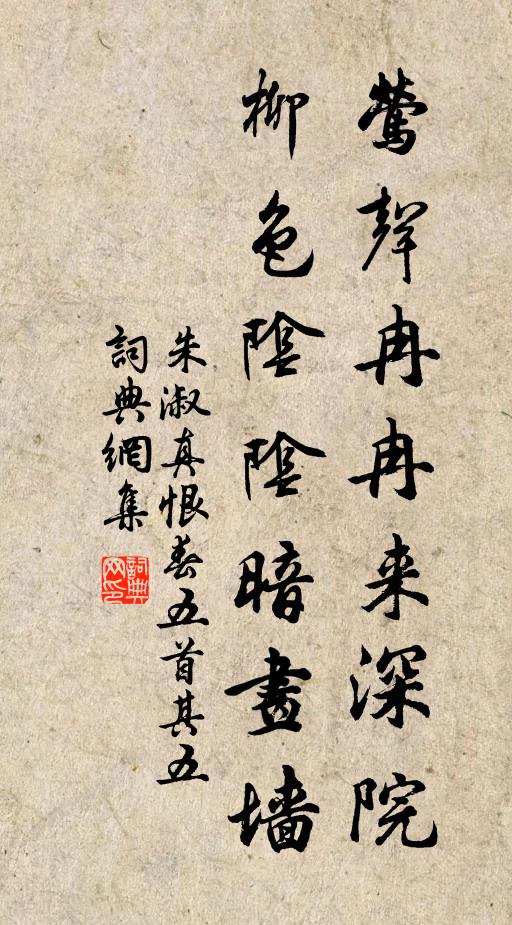 鶯聲冉冉来深院
柳色陰陰暗畫墻
朱淑真恨春五首其五
詞典網集
詞典
网印